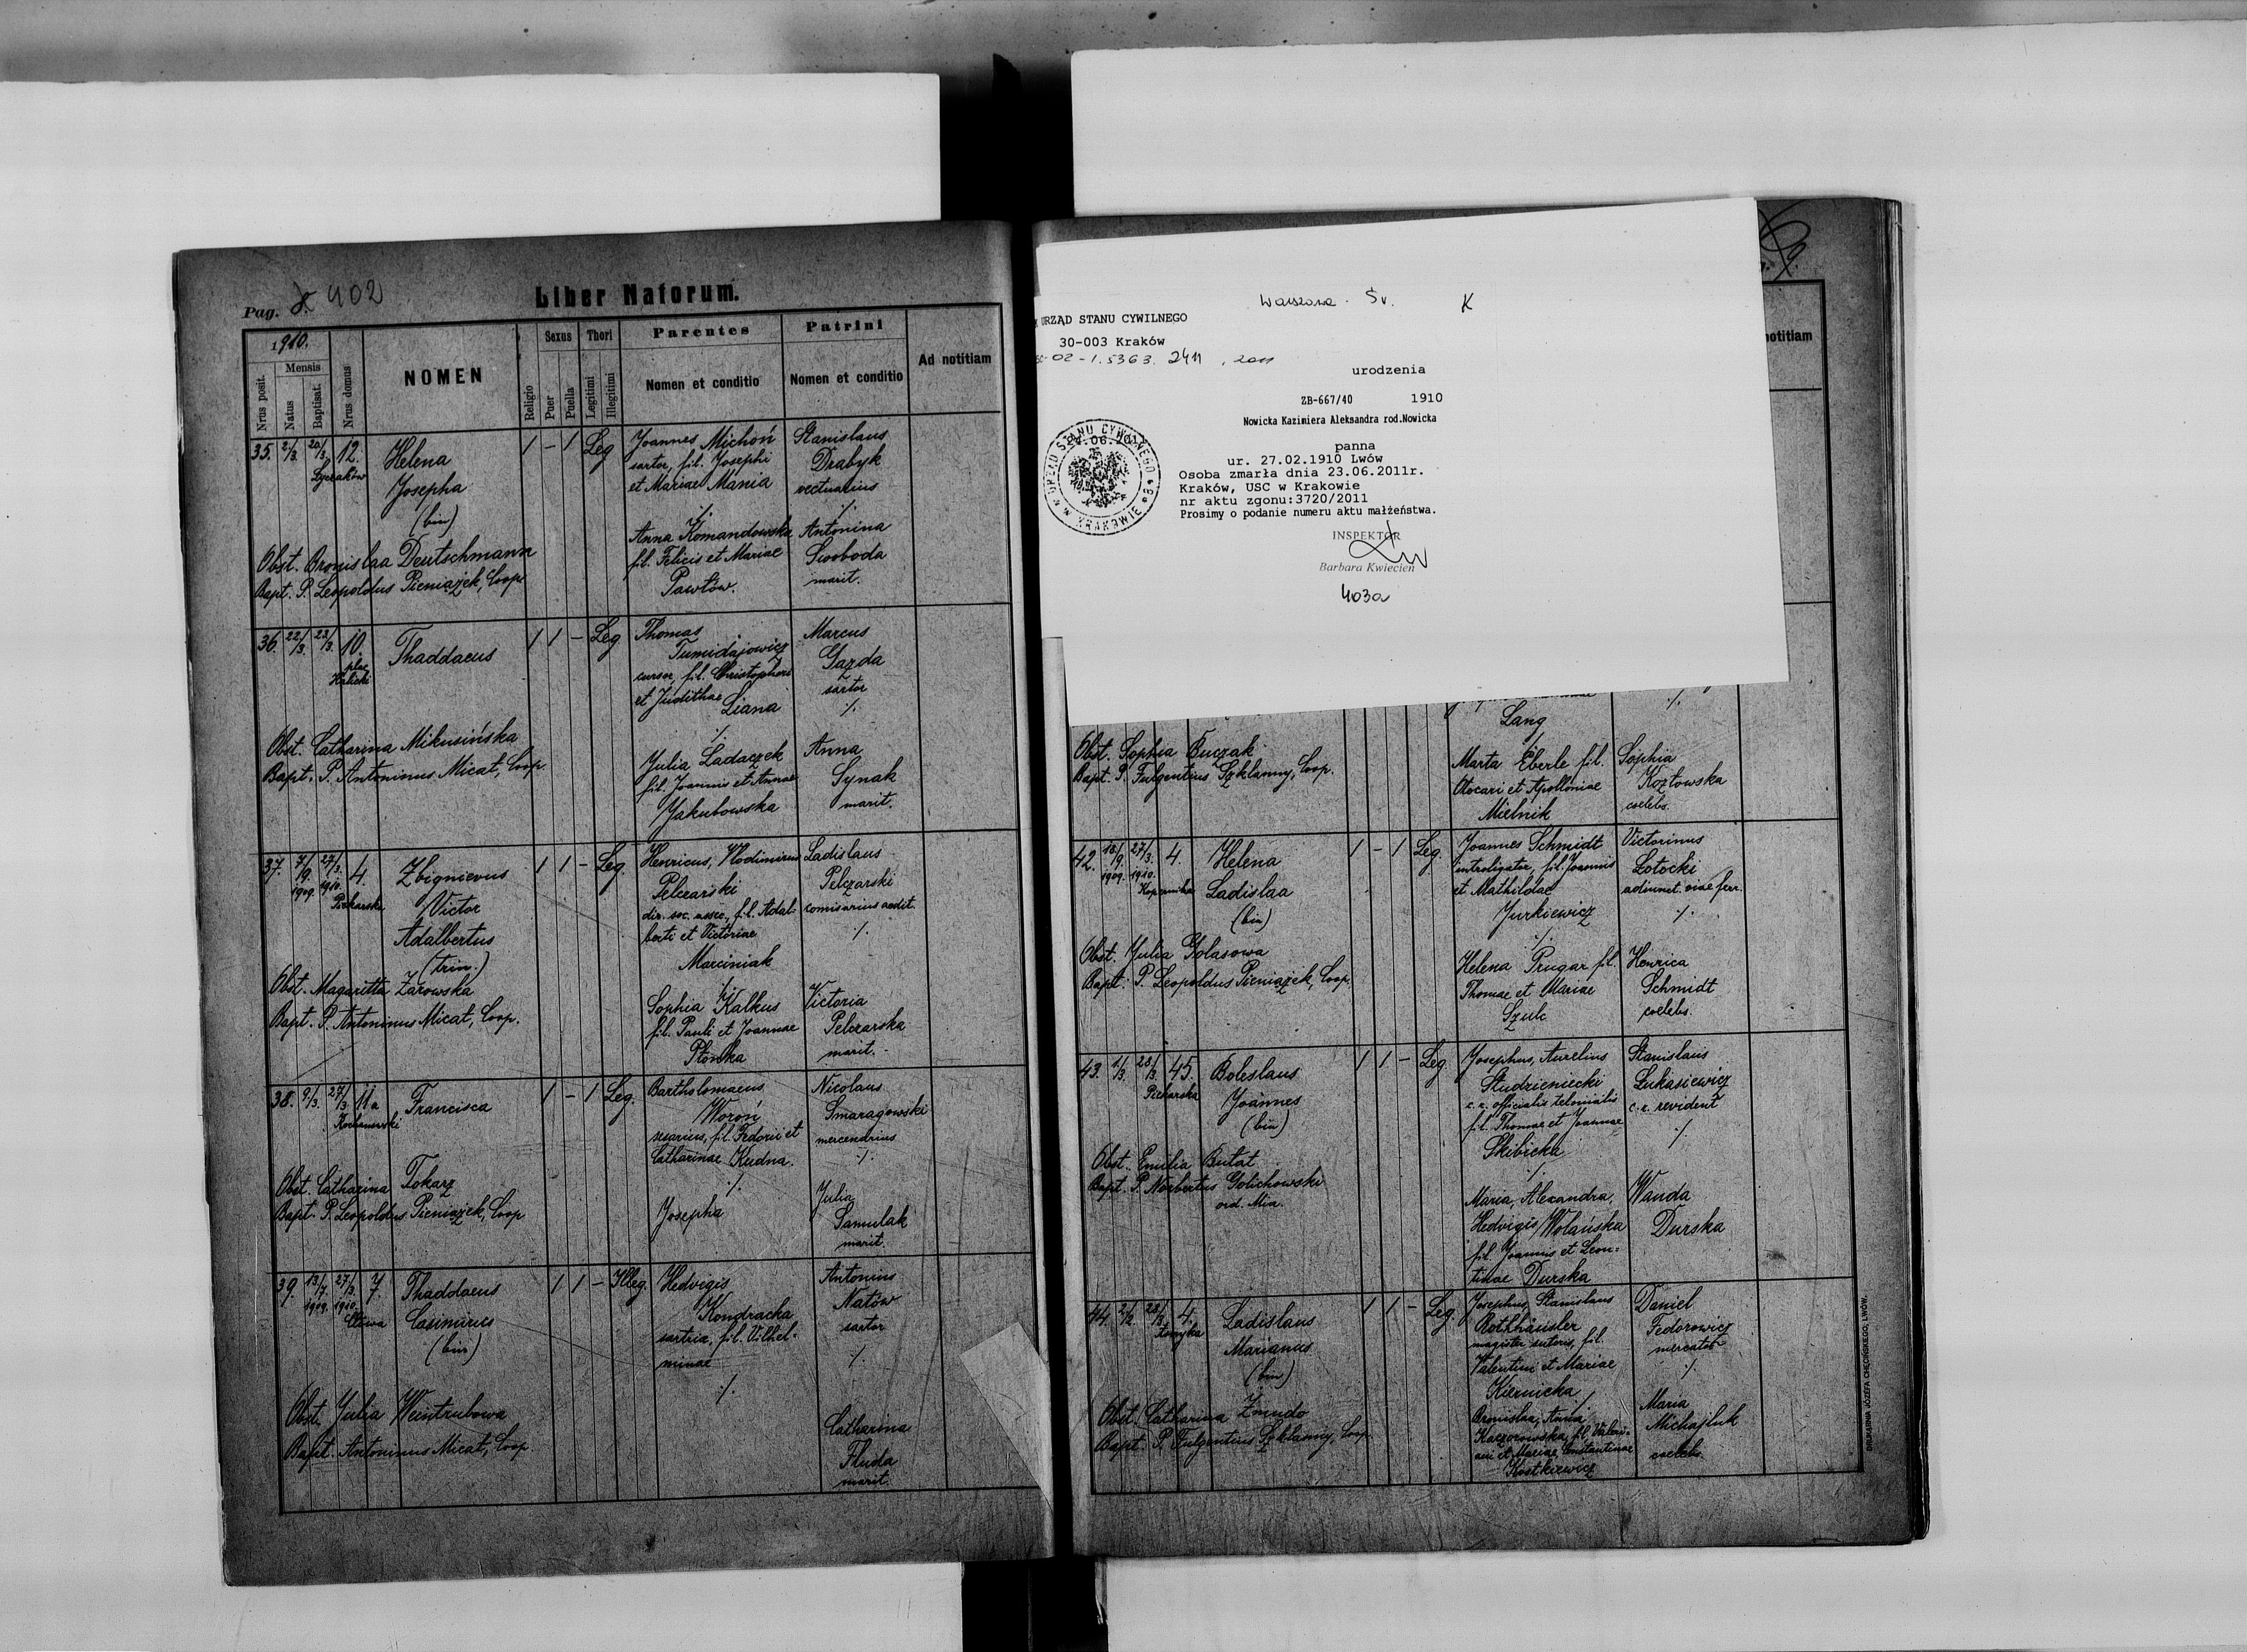 Pag. 8. 402
Liber Natorum.
1910.
Nrus posit.
Mensis
Natus
Baptisat.
Nrus domus
NOMEN
Religio
Sexus
Puer
Puella
Thori
Legitimi
Illegitimi
Parentes
Nomen et conditio
Patrini
Nomen et conditio
Ad notitiam
35. 2/3. 20/3. 12.
Łyczaków
Helena
Josepha
(bin)
1 - 1 Leg
Joannes Michoń
sartor, fil. Josephi
et Mariae Mania
./.
Anna Komandowska
fil. Felicis et Mariae
Pawłów.
Stanislaus
Drabyk
vectuarius
./.
Antonina
Swoboda
marit.
Obst. Bronislaa Deutschmann
Bapt. P. Leopoldus Pieniążek, Coop.
36. 22/3. 23/3. 10.
plac
Halicki
Thaddaeus
1 1 - Leg
Thomas
Tumidajowicz
cursor, fil. Christophori
et Judithae Liana
./.
Julia Ladaczek
fil. Joannis et Annae
Jakubowska
Marcus
Gazda
sartor
./.
Anna
Synak
marit.
Obst. Catharina Mikusińska
Bapt. P. Antoninus Micat, Coop.
37. 7/9. 1909. 27/3. 1910. 4.
Piekarska
Zbignievus
Victor
Adalbertus
(trin.)
1 1 - Leg.
Henricus, Wlodimirus
Pelczarski
dir. soc. assec., fil. Adal-
berti et Victoriae
Marciniak
./.
Sophia Kalkus
fil. Pauli et Joannae
Płonka
Ladislaus
Pelczarski
comisarius aedit.
./.
Victoria
Pelczarska
marit.
Obst. Magaritta Żarowska
Bapt. P. Antoninus Micat, Coop.
38. 9/3. 27/3. 11a
Kochanowski
Francisca
1 - 1 Leg.
Bartholomaeus
Woroń
fil. Fedorii et
Catharinae Kudna.
./.
Josepha
Nicolaus
Smaragowski
mercenarius
./.
Julia
Samulak
marit.
Obst. Catharina Tokarz
Bapt. P. Leopoldus Pieniążek, Coop
39. 13/7. 1909. 27/3. 1910. 7.
Thaddaeus
Casimirus
(bin)
1 1 - Illeg.
Hedvigis
Kondracka
sartrix, fil. Vilhel-
minae
./.
Antonius
Natów
sartor
./.
Catharina
Fluda
marit.
Obst. Julia Weintrubowa
Bapt. Antoninus Micat, Coop.
Warszawa - Śr. K
URZĄD STANU CYWILNEGO
30-003 Kraków
02-1.5363. 2411 . 2011
urodzenia
ZB-667/40 1910
Nowicka Kazimiera Aleksandra rod.Nowicka
panna
ur. 27.02.1910 Lwów
Osoba zmarła dnia 23.06.2011r.
Kraków, USC w Krakowie
nr aktu zgonu:3720/2011
Prosimy o podanie numeru aktu małżeństwa.
URZĄD STANU CYWILNEGO
W KRAKOWIE
INSPEKTOR
Barbara Kwiecień
403a
9.
notitiam
Lang
./.
Marta Eberle fil.
Otocari et Apolloniae
Mielnik
./.
Sophia
Kozłowska
coelebs.
Obst. Sophia Buczak
Bapt. P. Fulgentius Szklanny, Coop.
42. 18/9. 1909. 27/3. 1910. 4.
Kopernika
Helena
Ladislaa
(bin)
1 - 1 Leg.
Joannes Schmidt
introligator, fil. Joannis
et Mathildae
Jurkiewicz
./.
Helena Prugar fil.
Thomae et Mariae
Szulc
Victorinus
Łotocki
adiunct. viae ferr.
./.
Henrica
Schmidt
coelebs.
Obst. Julia Golasowa
Bapt. P. Leopoldus Pieniążek, Coop.
43. 1/3. 28/3. 45.
Piekarska
Boleslaus
Joannes
(bin)
1 1 - Leg.
Josephus, Aurelius
Studzieniecki
c. r. officialis telonialis
fil. Thomae et Joannae
Skibicka
./.
Maria, Alexandra,
Hedvigis Wolańska
fil. Joannis et Leon-
tinae Durska
Stanislaus
Łukasiewicz
c. r. revident
./.
Wanda
Durska
Obst. Emilia Butat
Bapt. P. Norbertus Golichowski
ord. Min.
44. 2/2. 28/3. 4.
Ladislaus
Marianus
(bin)
1 1 - Leg.
Josephus, Stanislaus
Rothhäusler
magister sutoris, fil.
Valentini et Mariae
Kiernicka
./.
Bronislaa, Anna
Kaczorowska, fil. Valeri-
ani et Mariae Constantinae
Kostkiewicz
Daniel
Fedorowicz
mercator
./.
Maria
Michajluk
coelebs.
Obst. Catharina Żmudo
Bapt. P. Fulgentius Szklanny, Coop.
DRUKARNIA JÓZEFA CHĘCIŃSKIEGO, LWÓW.